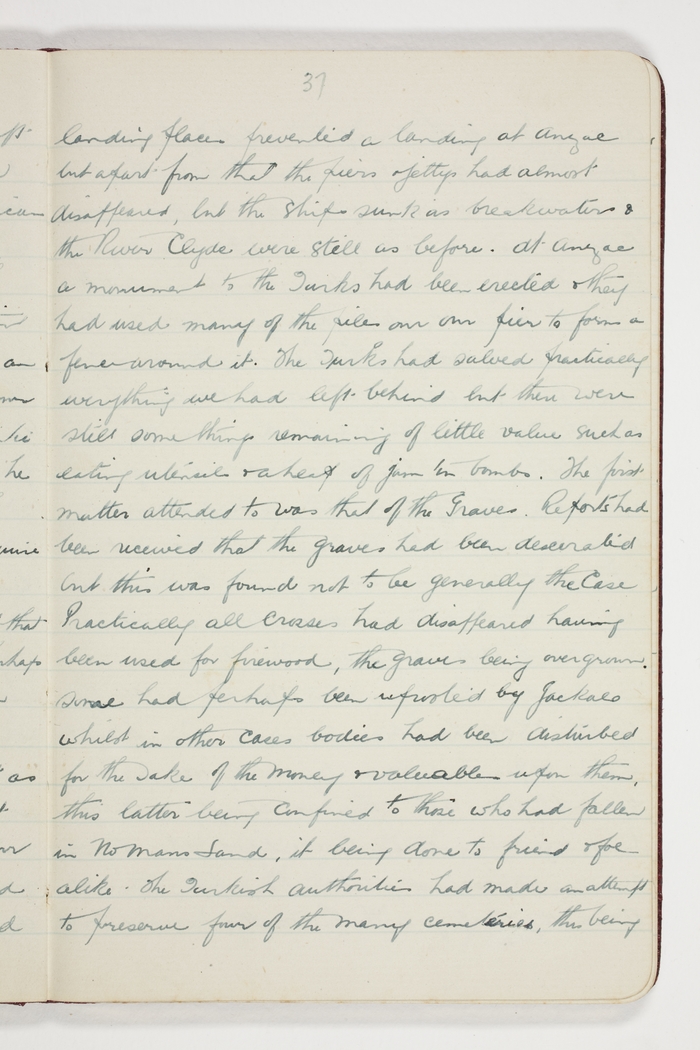 37
landing places prevented a landing at Anzac
but apart from that the piers & jettys had almost
disappeared, but the ships sunk as breakwaters &
the River Clyde were still as before. At Anzac
a monument to the Turks had been erected & they
had used many of the piles our our pier to form a
fence around it. The Turks had salved practically
everything we had left behind but there were
still some things remaining of little value such as
eating utensils & a heap of jam tin bombs. The first
matter attended to was that of the Graves. Reports had
been received that the graves had been desecrated
but this was found not to be generally the Case
Practically all Crosses had disappeared having
been used for firewood, the graves being overgrown.
Some had perhaps been uprooted by Jackals
whilst in other Cases bodies had been disturbed
for the sake of the money & valuables upon them,
this latter being Confined to those who had fallen
in No Mans Land, it being done to friend & foe
alike. The Turkish authorities had made an attempt
to preserve four of the many cemeteries, this being